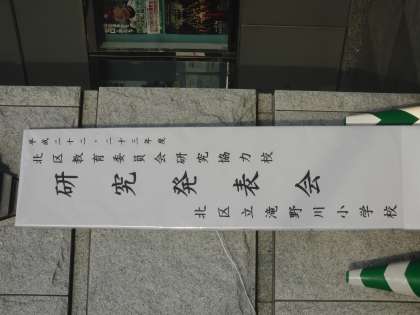 平成二十二・二十三年度
北区教育委員会研究協力校
研究発表会
北区立滝野川小学校